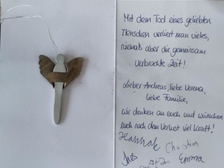 Mit dem Tod eines geliebten
Menschen verliert man vieles,
niemals aber die gemeinsam
verbrachte Zeit!
Lieber Andreas, liebe Verena,
liebe Familie,
wir denken an euch und wünschen
euch nach dem Verlust viel Kraft!
Hannah Christian
Emma